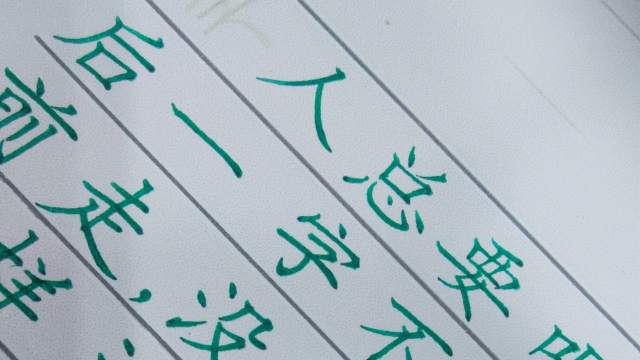 人总要
后一字不
前走，没
样